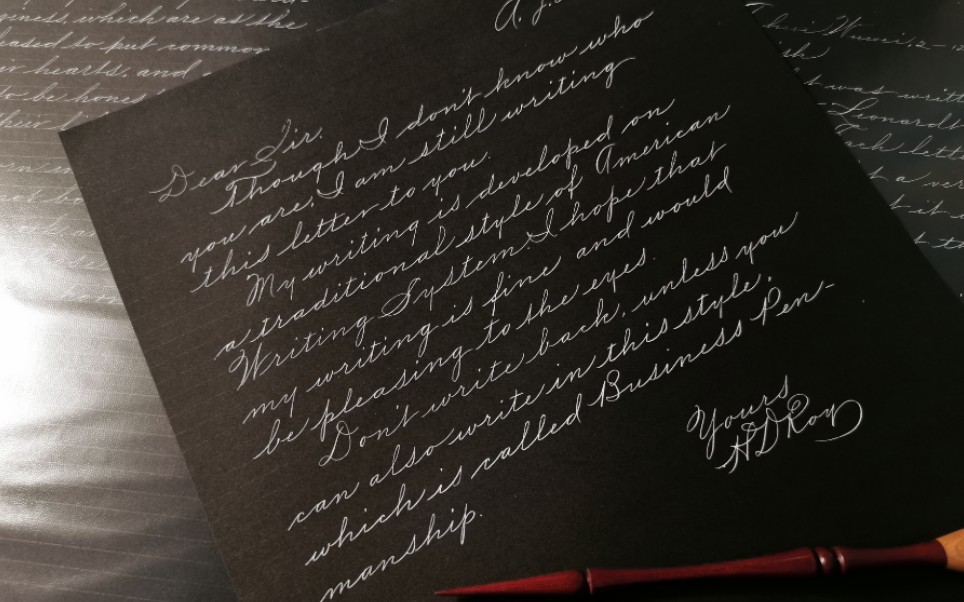 giness, which are as the
eased to put common
ir hearts, and
to be hones
their
A. J.
Dear Sir.
Though I don't know who
you are, I am still writing
this letter to you.
My writing is developed on
a traditional style of American
Writing System. I hope that
my writing is fine and would
be pleasing to the eyes.
Don't write back, unless you
can also write in this style,
which is called Business Pen-
manship.
Yours
HDRoy
was writt
Leonardo
Each lette
t a ver
t it